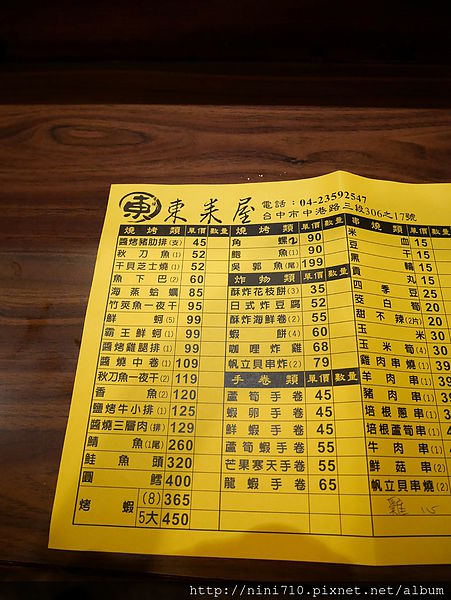 東
東来屋
電話：04-23592547
台中市中港路三段306之17號
燒烤類 單價 數量
醬烤豬肋排(支) 45
秋刀魚(1) 52
干貝芝士燒(1) 52
魚下巴(2) 60
海蒸蛤蠣 85
竹筴魚一夜干(2) 95
鮮蚵(5) 99
霸王鮮蚵(1) 99
醬烤雞腿排(1) 99
醬燒中卷(1) 109
秋刀魚一夜干(2) 119
香魚(2) 120
鹽烤牛小排(1) 125
醬燒三層肉(排) 129
鯖魚(1尾) 260
鮭魚頭 320
圓鱈 400
烤蝦 (8) 365
5大 450
燒烤類 單價 數量
角螺 90
鮑魚(1) 90
吳郭魚(尾) 199
炸物類 單價 數量
酥炸花枝餅(3) 35
日式炸豆腐 52
酥炸海鮮卷(2) 55
蝦餅(4) 60
咖哩炸雞 68
帆立貝串炸(2) 79
手卷類 單價 數量
蘆筍手卷 45
蝦卵手卷 45
鮮蝦手卷 45
蘆筍蝦手卷 55
芒果寒天手卷 55
龍蝦手卷 65
串燒類 單價
米血 15
豆干 15
黑輪 15
貢丸 15
四季豆 25
筊白筍 20
甜不辣(2片) 20
玉米 30
玉米筍(4) 30
雞肉串燒(1)
羊肉串(1)
豬肉串(1)
培根蔥串(1)
培根蘆筍串(1)
牛肉串(1)
鮮菇串(2)
帆立貝串燒(2)
雞
http://nini710.pixnet.net/album